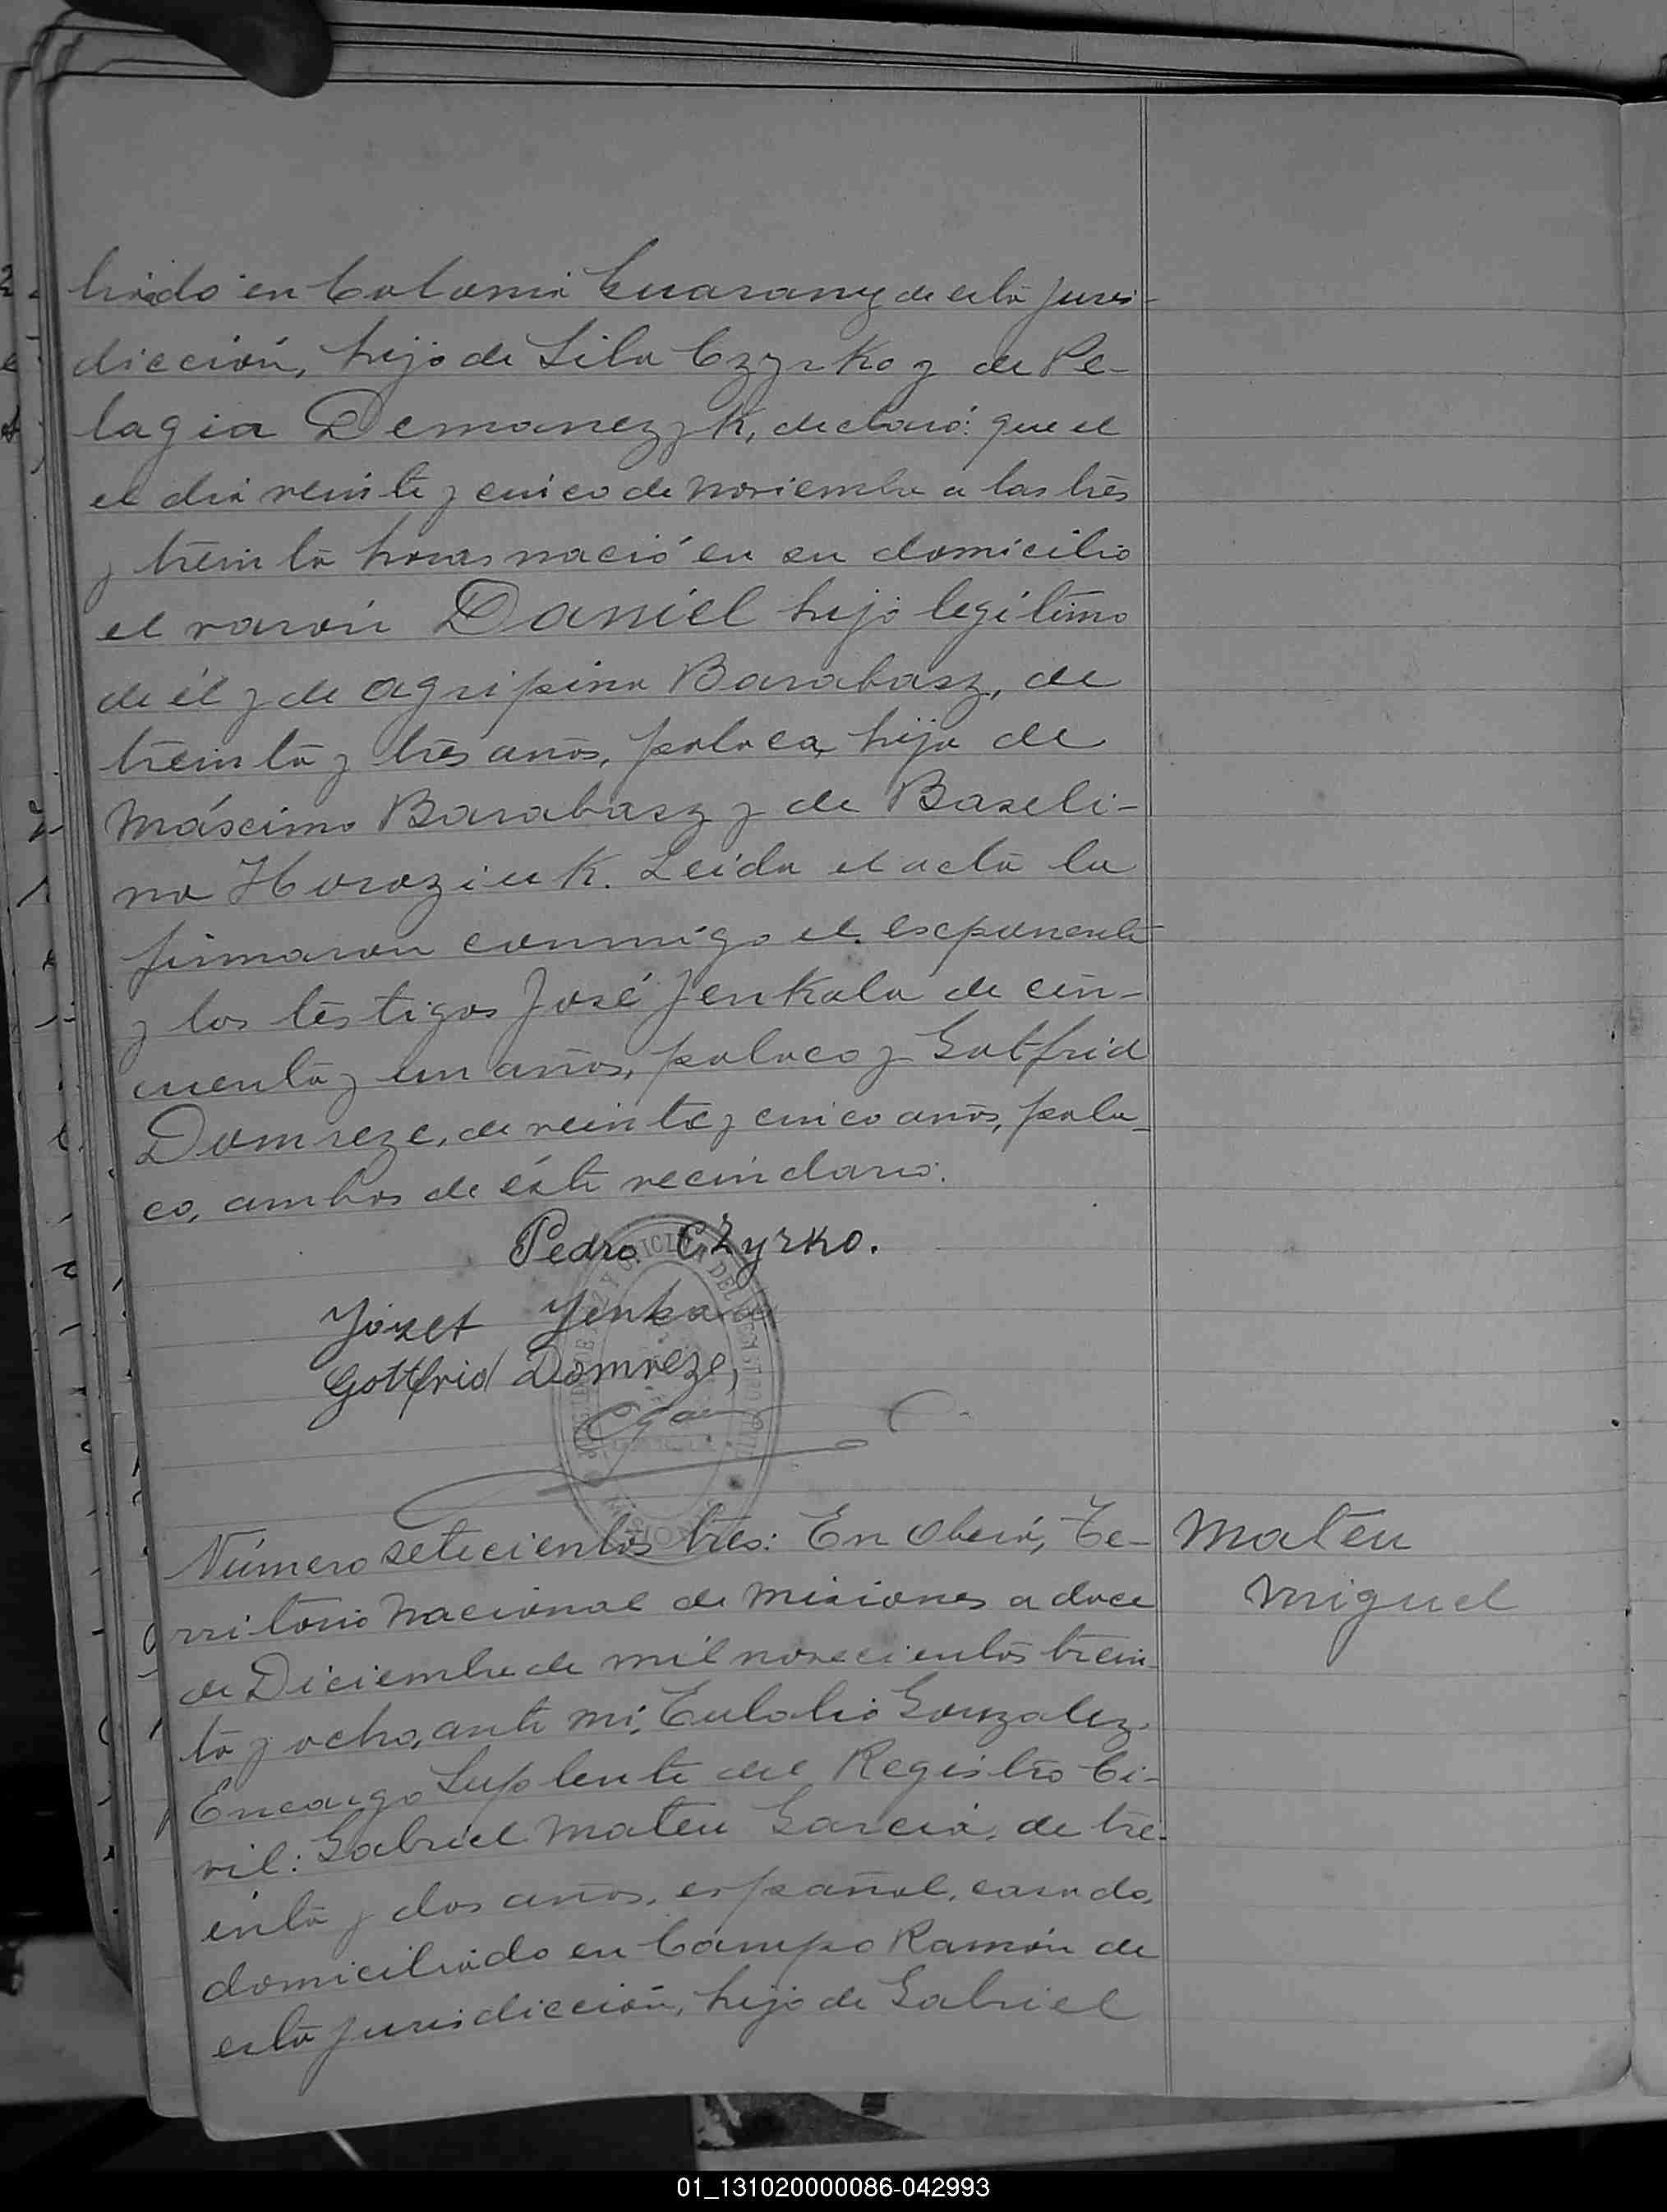 liado en Colonia Guarany de esta juris-
dicción, hijo de Sila Czyrko y de Pe-
lagia Demanezyk, declaró: que el
el dia veinte y cinco de Noviembre a las tres
y treinta horas nació en su domicilio
el varón Daniel hijo legítimo
de él y de Agripina Barabasz, de
treinta y tres años, polaca, hija de
Máscimo Barabasz y de Baseli-
na Horoziuk. Leida el acta la
firmaron conmigo el esponente
y los testigos José Jenkala de cin-
cuenta y un años, polaco y Gotfrid
Domreze, de veinte y cinco años, pola-
co, ambos de éste vecindario.
Pedro Czyrko.
Józet Jenkala
Gottfrid Domreze,
Número setecientos tres: En Oberá, Te-
rritorio Nacional de Misiones a doce
de Diciembre de mil novecientos trein-
ta y ocho, ante mi, Eulalio Gonzalez.
Encargo Suplente del Registro Ci-
vil: Gabriel Mateu Garcia, de tre-
inta y dos años, español, casado,
domiciliado en Campo Ramón de
esta jurisdicción, hijo de Gabriel
Mateu
Miguel
01_131020000086-042993